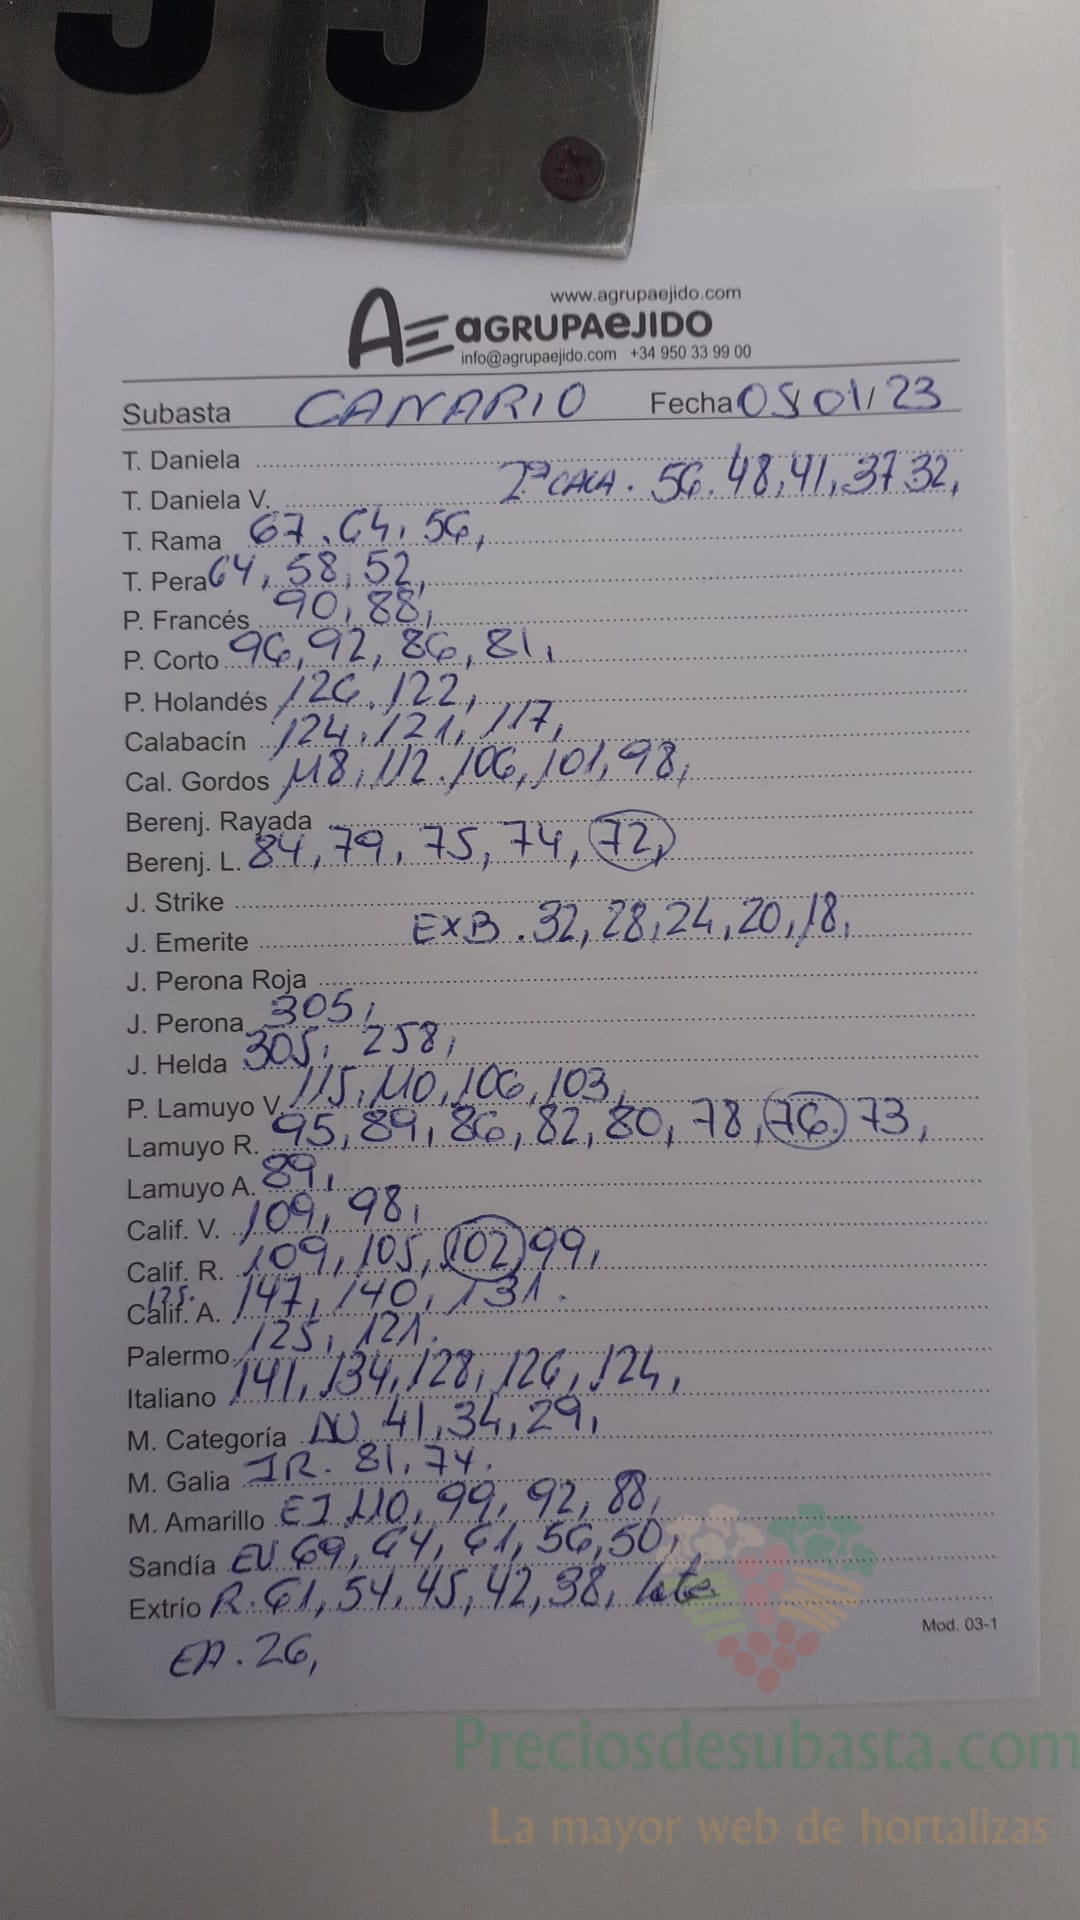 www.agrupaejido.com
AE aGRUPAeJIDO
info@agrupaejido.com +34 950 33 99 00
Subasta CANARIO Fecha 05/01/23
T. Daniela
T. Daniela V. 2ª CACA. 56, 48, 41, 37, 32,
T. Rama 67, 64, 56,
T. Pera 64, 58, 52,
P. Francés 90, 88,
P. Corto 96, 92, 86, 81,
P. Holandés 126, 122,
Calabacín 124, 121, 117,
Cal. Gordos 118, 112, 106, 101, 98,
Berenj. Rayada
Berenj. L. 84, 79, 75, 74, 72,
J. Strike
J. Emerite EXB. 32, 28, 24, 20, 18,
J. Perona Roja
J. Perona 305,
J. Helda 305, 258,
P. Lamuyo V. 115, 110, 106, 103,
Lamuyo R. 95, 89, 86, 82, 80, 78, 76, 73,
Lamuyo A. 89,
Calif. V. 109, 98,
Calif. R. 109, 105, 102, 99,
Calif. A. 147, 140, 131.
125.
Palermo 125, 121.
Italiano 141, 134, 128, 126, 124,
M. Categoría 41, 34, 29,
M. Galia IR. 81, 74.
M. Amarillo EJ 110, 99, 92, 88,
Sandía EV 69, 64, 61, 56, 50,
Extrío R. 61, 54, 45, 42, 38,
Mod. 03-1
EA. 26,
Preciosdesubasta.com
La mayor web de hortalizas